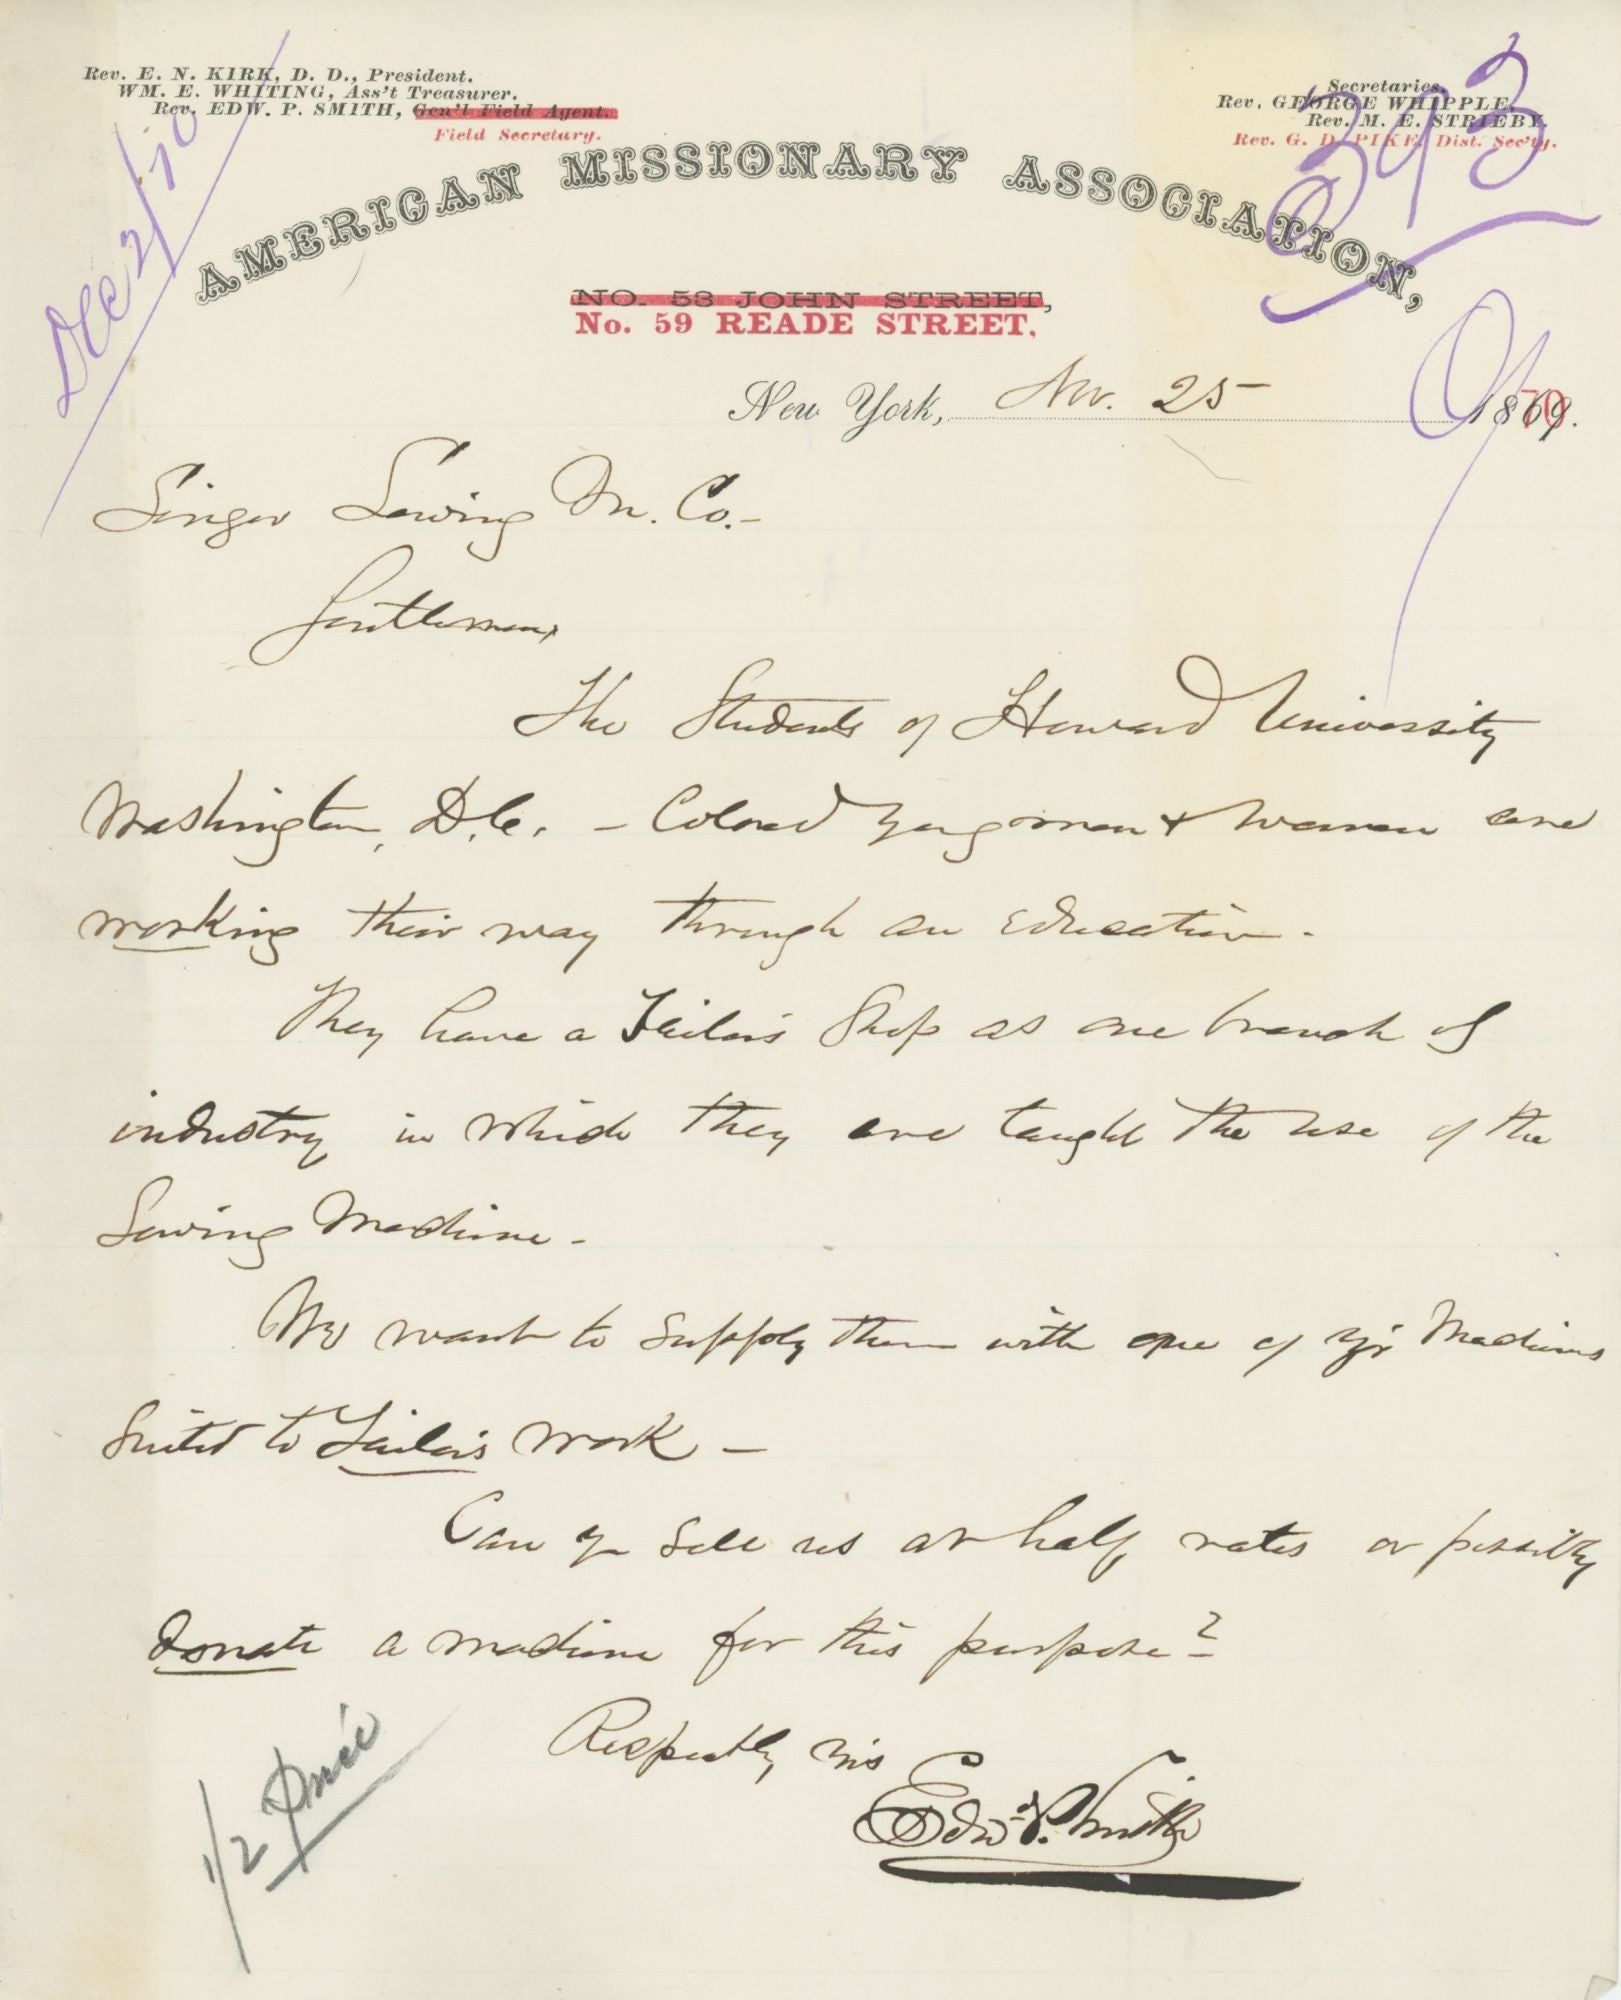 Rev. E. N. KIRK, D. D., President.
WM. E. WHITING, Ass't Treasurer.
Rev. EDW. P. SMITH, Gen'l Field Agent.
Field Secretary.
Secretaries.
Rev. GEORGE WHIPPLE.
Rev. M. E. STRIEBY.
Rev. G. D. PIKE, Dist. Sec'ty.
Dec 2/70
393
AMERICAN MISSIONARY ASSOCIATION,
NO. 53 JOHN STREET,
No. 59 READE STREET.
New York, Nov. 25 1870.
Singer Sewing M. Co.-
Gentlemen,
The Students of Howard University
Washington, D.C. - Colored young men & women are
working their way through an education.
They have a Tailor's Shop as one branch of
industry in which they are taught the use of the
Sewing Machine -
We want to supply them with one of yr Machines
suited to Tailor's work -
Can yo sell us at half rates or possibly
donate a machine for this purpose?
Respectly yrs
Edw P. Smith
1/2 Price